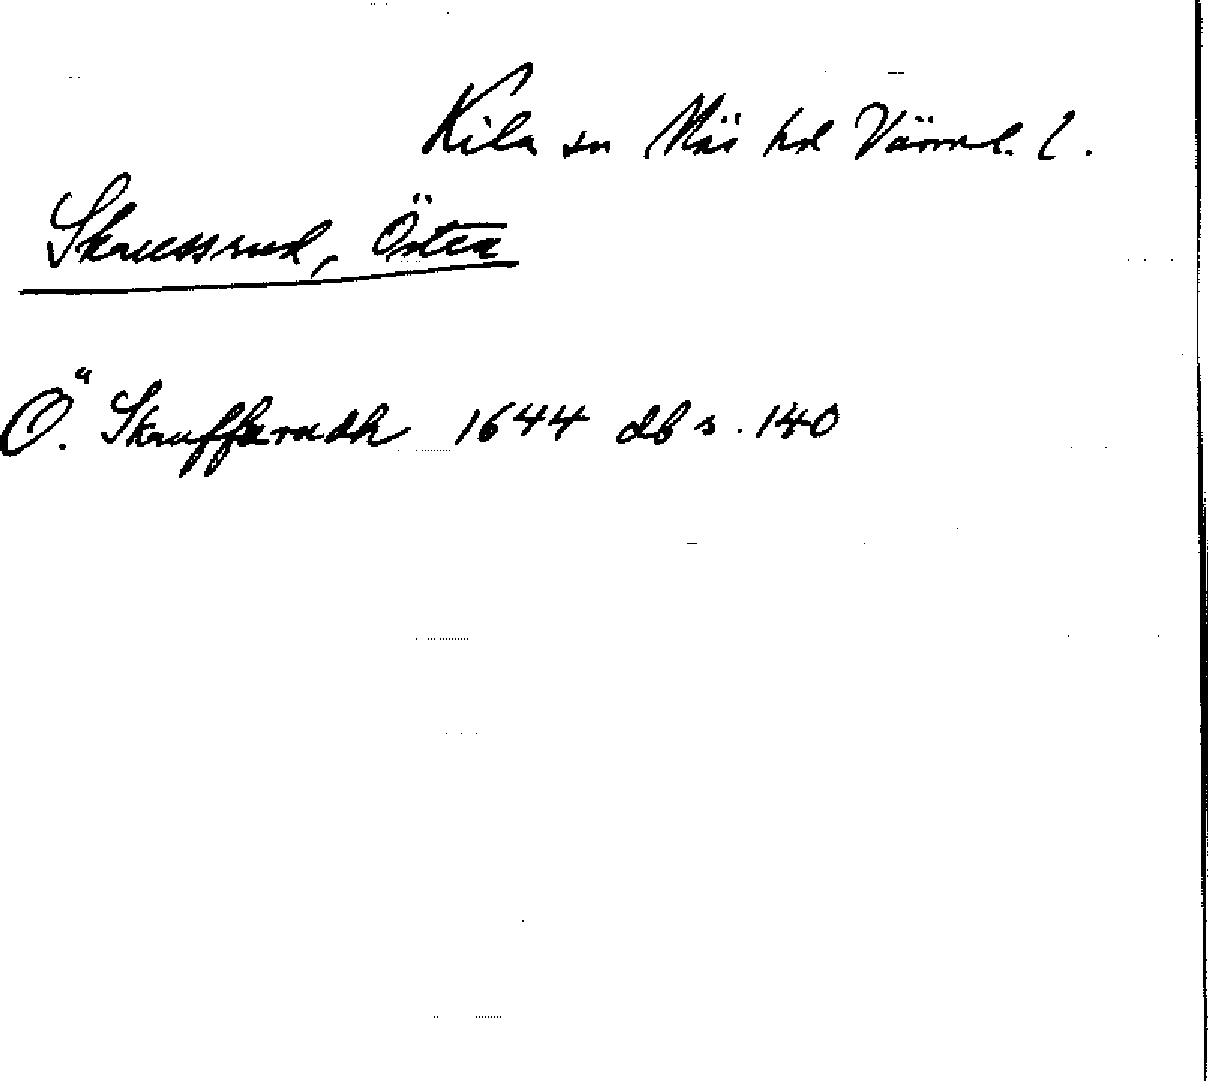 Kila sn Näs hd Värml. l.
Skrussrud, Östra
Ö. Skruffzrudh 1644 db s. 140